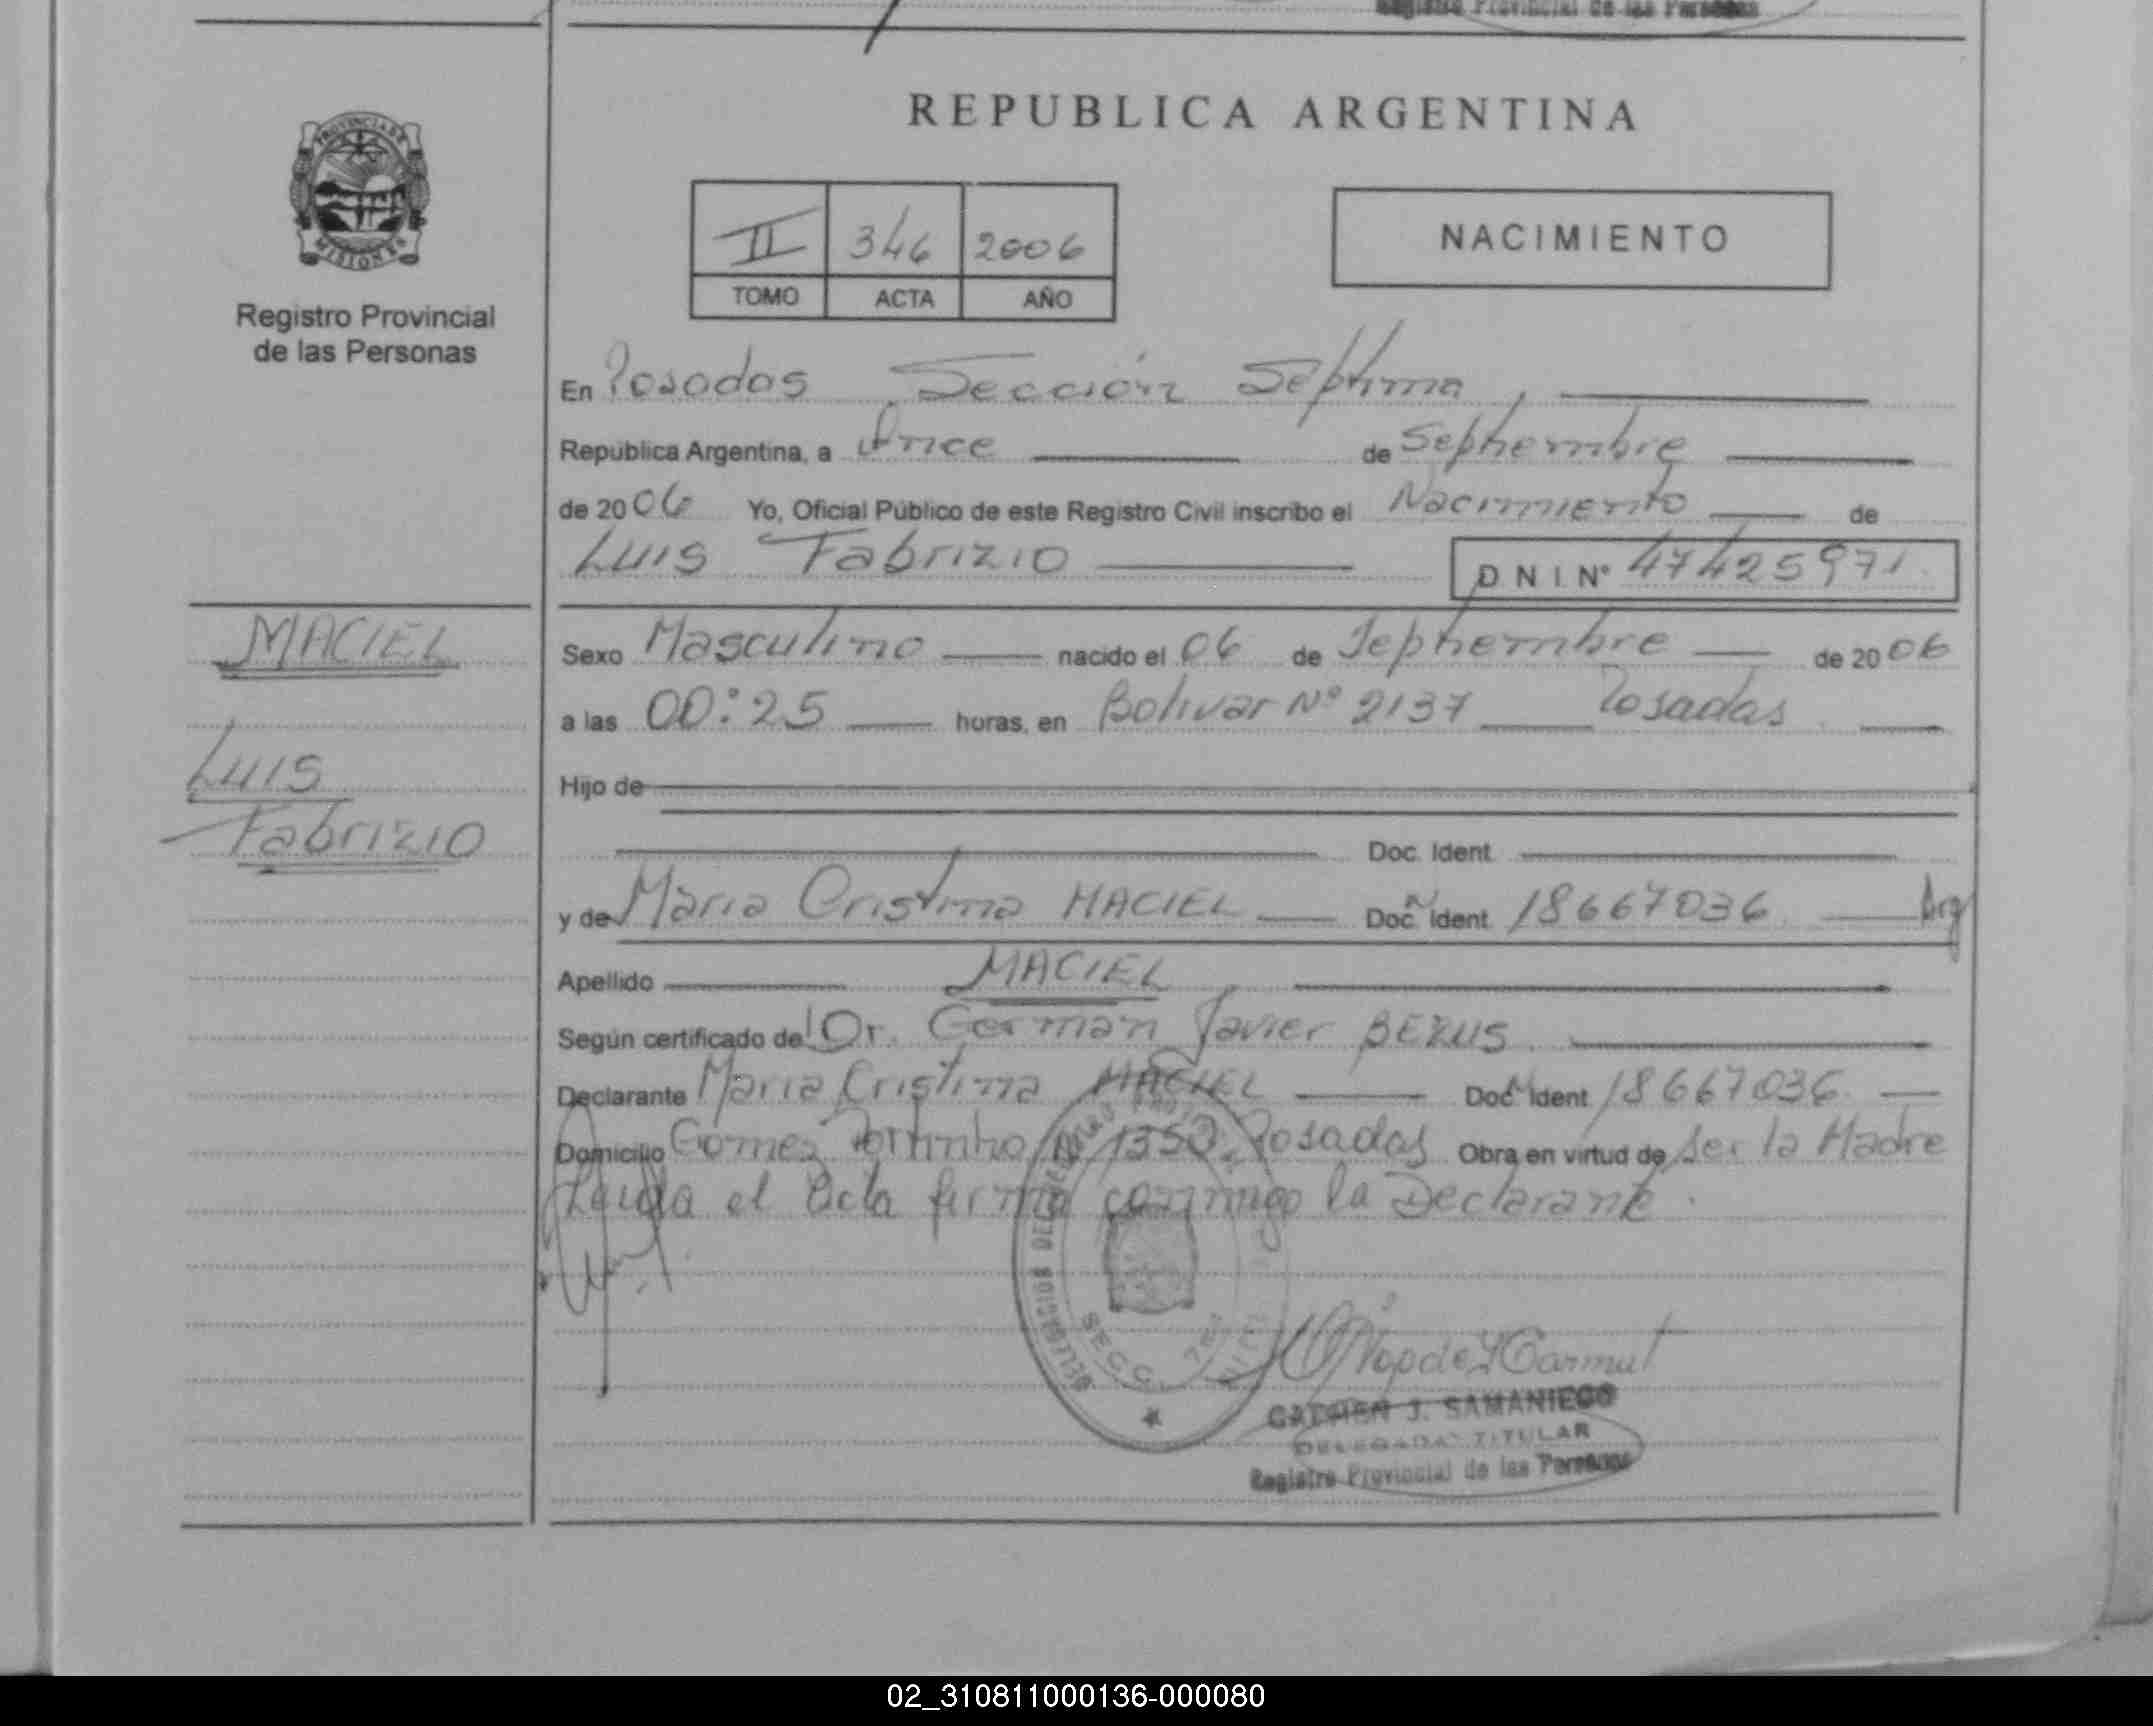 Registro Provincial de las Personas
REPUBLICA ARGENTINA
PROVINCIA DE
MISIONES
Registro Provincial
de las Personas
II 346 2006
TOMO ACTA AÑO
NACIMIENTO
En Posadas Sección Séptima,
República Argentina, a Once de Septiembre
de 2006 Yo, Oficial Público de este Registro Civil inscribo el Nacimiento de
Luis Fabrizio D N I Nº 47425971
MACIEL
Luis
Fabrizio
Sexo Masculino nacido el 06 de Septiembre de 2006
a las 00:25 horas, en Bolivar Nº 2137 Posadas
Hijo de
Doc. Ident.
y de Maria Cristina MACIEL Doc. Ident. 18667036 Arg
Apellido MACIEL
Según certificado de Dr. German Javier BEZUS
Declarante Maria Cristina MACIEL Doc. Ident. 18667036
Domicilio Gomez Portinho Nº 1350 Posadas Obra en virtud de Ser la Madre
Leida el Acta firma conmigo la Declarante.
SECC.
CARMEN J. SAMANIEGO
DELEGADA TITULAR
Registro Provincial de las Personas
02_310811000136-000080